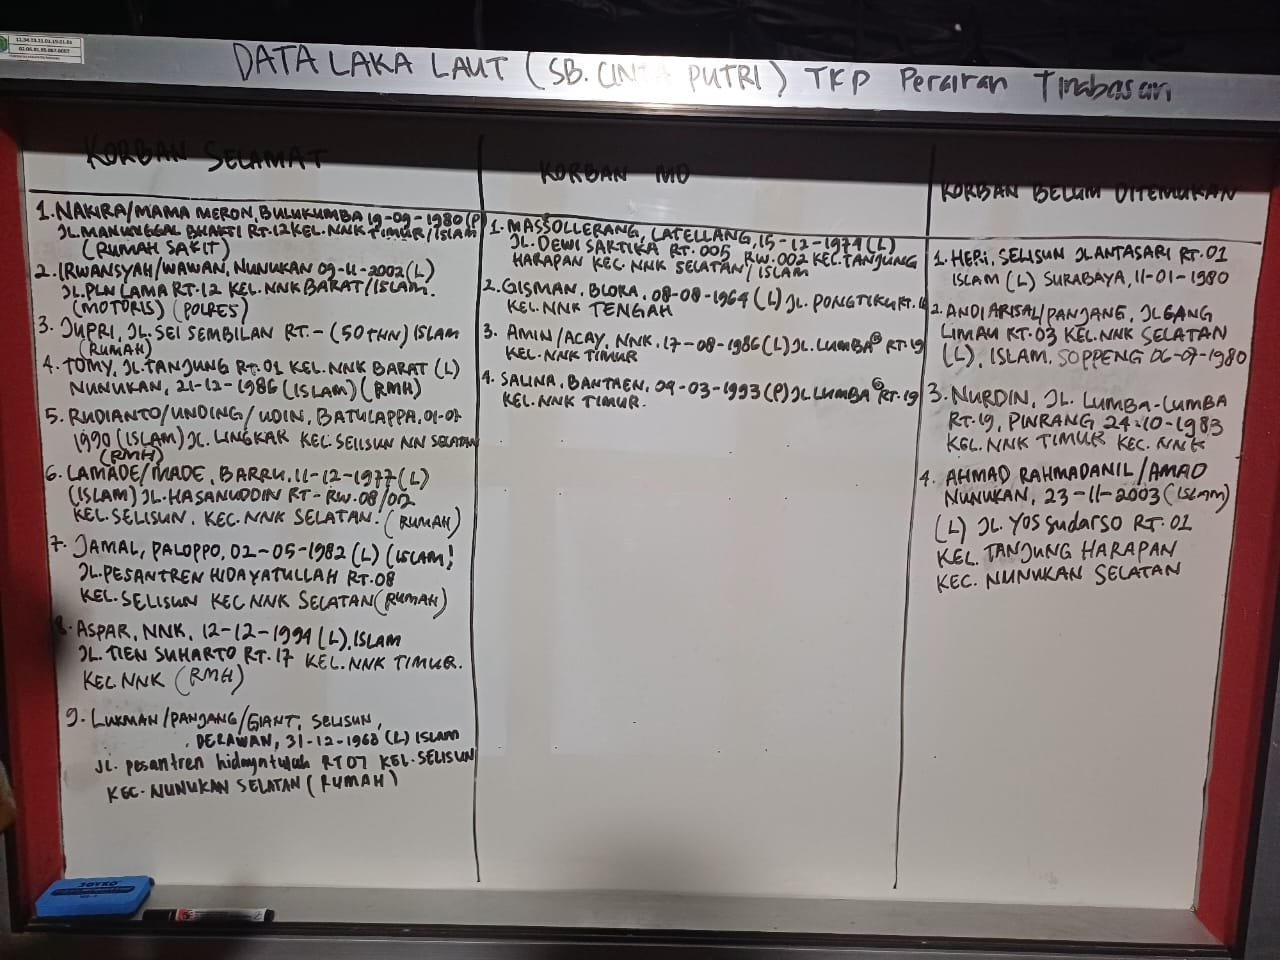 DATA LAKA LAUT (SB. CINTA PUTRI) TKP Perairan Tinabasan
KORBAN SELAMAT
1. NAKIRA/MAMA MERON, BULUKUMBA 19-09-1980 (P)
JL. MANUNGGAL BHAKTI RT.12 KEL. NNK TIMUR/ISLAM
(RUMAH SAKIT)
2. IRWANSYAH/WAWAN, NUNUKAN 09-11-2002 (L)
JL. PLN LAMA RT.12 KEL. NNK BARAT/ISLAM.
(MOTORIS) (POLRES)
3. JUPRI, JL. SEI SEMBILAN RT.- (50 THN) ISLAM
(RUMAH)
4. TOMY, JL. TANJUNG RT.01 KEL. NNK BARAT (L)
NUNUKAN, 21-12-1986 (ISLAM) (RMH)
5. RUDIANTO/UNDING/UDIN, BATULAPPA, 01-07
1990 (ISLAM) JL. LINGKAR KEL. SELISUN NN SELATAN
(RMH)
6. LAMADE/MADE, BARRU, 11-12-1977 (L)
(ISLAM) JL. HASANUDDIN RT- RW.08/002
KEL. SELISUN. KEC. NNK SELATAN. (RUMAH)
7. JAMAL, PALOPPO, 02-05-1982 (L) (ISLAM)
JL. PESANTREN HIDAYATULLAH RT.08
KEL. SELISUN KEC NNK SELATAN (RUMAH)
8. ASPAR, NNK, 12-12-1994 (L). ISLAM
JL. TIEN SUHARTO RT.17 KEL. NNK TIMUR.
KEC NNK (RMH)
9. LUKMAN/PANJANG/GIANT, SELISUN,
DERAWAN, 31-12-1968 (L) ISLAM
Jl. pesantren hidayatulah RT07 KEL. SELISUN
KEC. NUNUKAN SELATAN (RUMAH)
KORBAN MD
1. MASSOLLERANG, LATELLANG, 15-12-1974 (L)
JL. DEWI SARTIKA RT.005 RW.002 KEC. TANJUNG
HARAPAN KEC. NNK SELATAN/ISLAM
2. GISMAN. BLORA. 08-08-1964 (L) JL. PONGTIKU RT.
KEL. NNK TENGAH
3. AMIN/ACAY, NNK, 17-08-1986 (L) JL. LUMBA² RT.19
KEL. NNK TIMUR
4. SALINA, BANTAEN, 09-03-1993 (P) JL LUMBA² RT.19
KEL. NNK TIMUR.
KORBAN BELUM DITEMUKAN
1. HERI, SELISUN JL ANTASARI RT.01
ISLAM (L) SURABAYA, 11-01-1980
2. ANDI ARISAL/PANJANG, JL GANG
LIMAU RT.03 KEL. NNK SELATAN
(L). ISLAM, SOPPENG 06-07-1980
3. NURDIN, JL. LUMBA-LUMBA
RT.19, PINRANG 24-10-1983
KEL. NNK TIMUR KEC. NNK
4. AHMAD RAHMADANIL/AMAD
NUNUKAN, 23-11-2003 (ISLAM)
(L) JL. Yos Sudarso RT.01
KEL. TANJUNG HARAPAN
KEC. NUNUKAN SELATAN
JOYKO